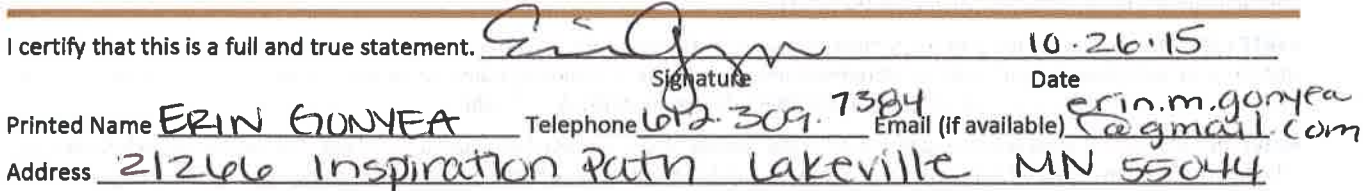 I certify that this is a full and true statement. Erin Gonyea 10.26.15
Signature Date
Printed Name ERIN GONYEA Telephone 612.309.7384 Email (if available) erin.m.gonyea
@gmail.com
Address 21266 Inspiration Path Lakeville MN 55044